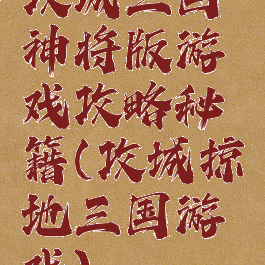 攻城三国
神将版游
戏攻略秘
籍(攻城掠
地三国游
戏)